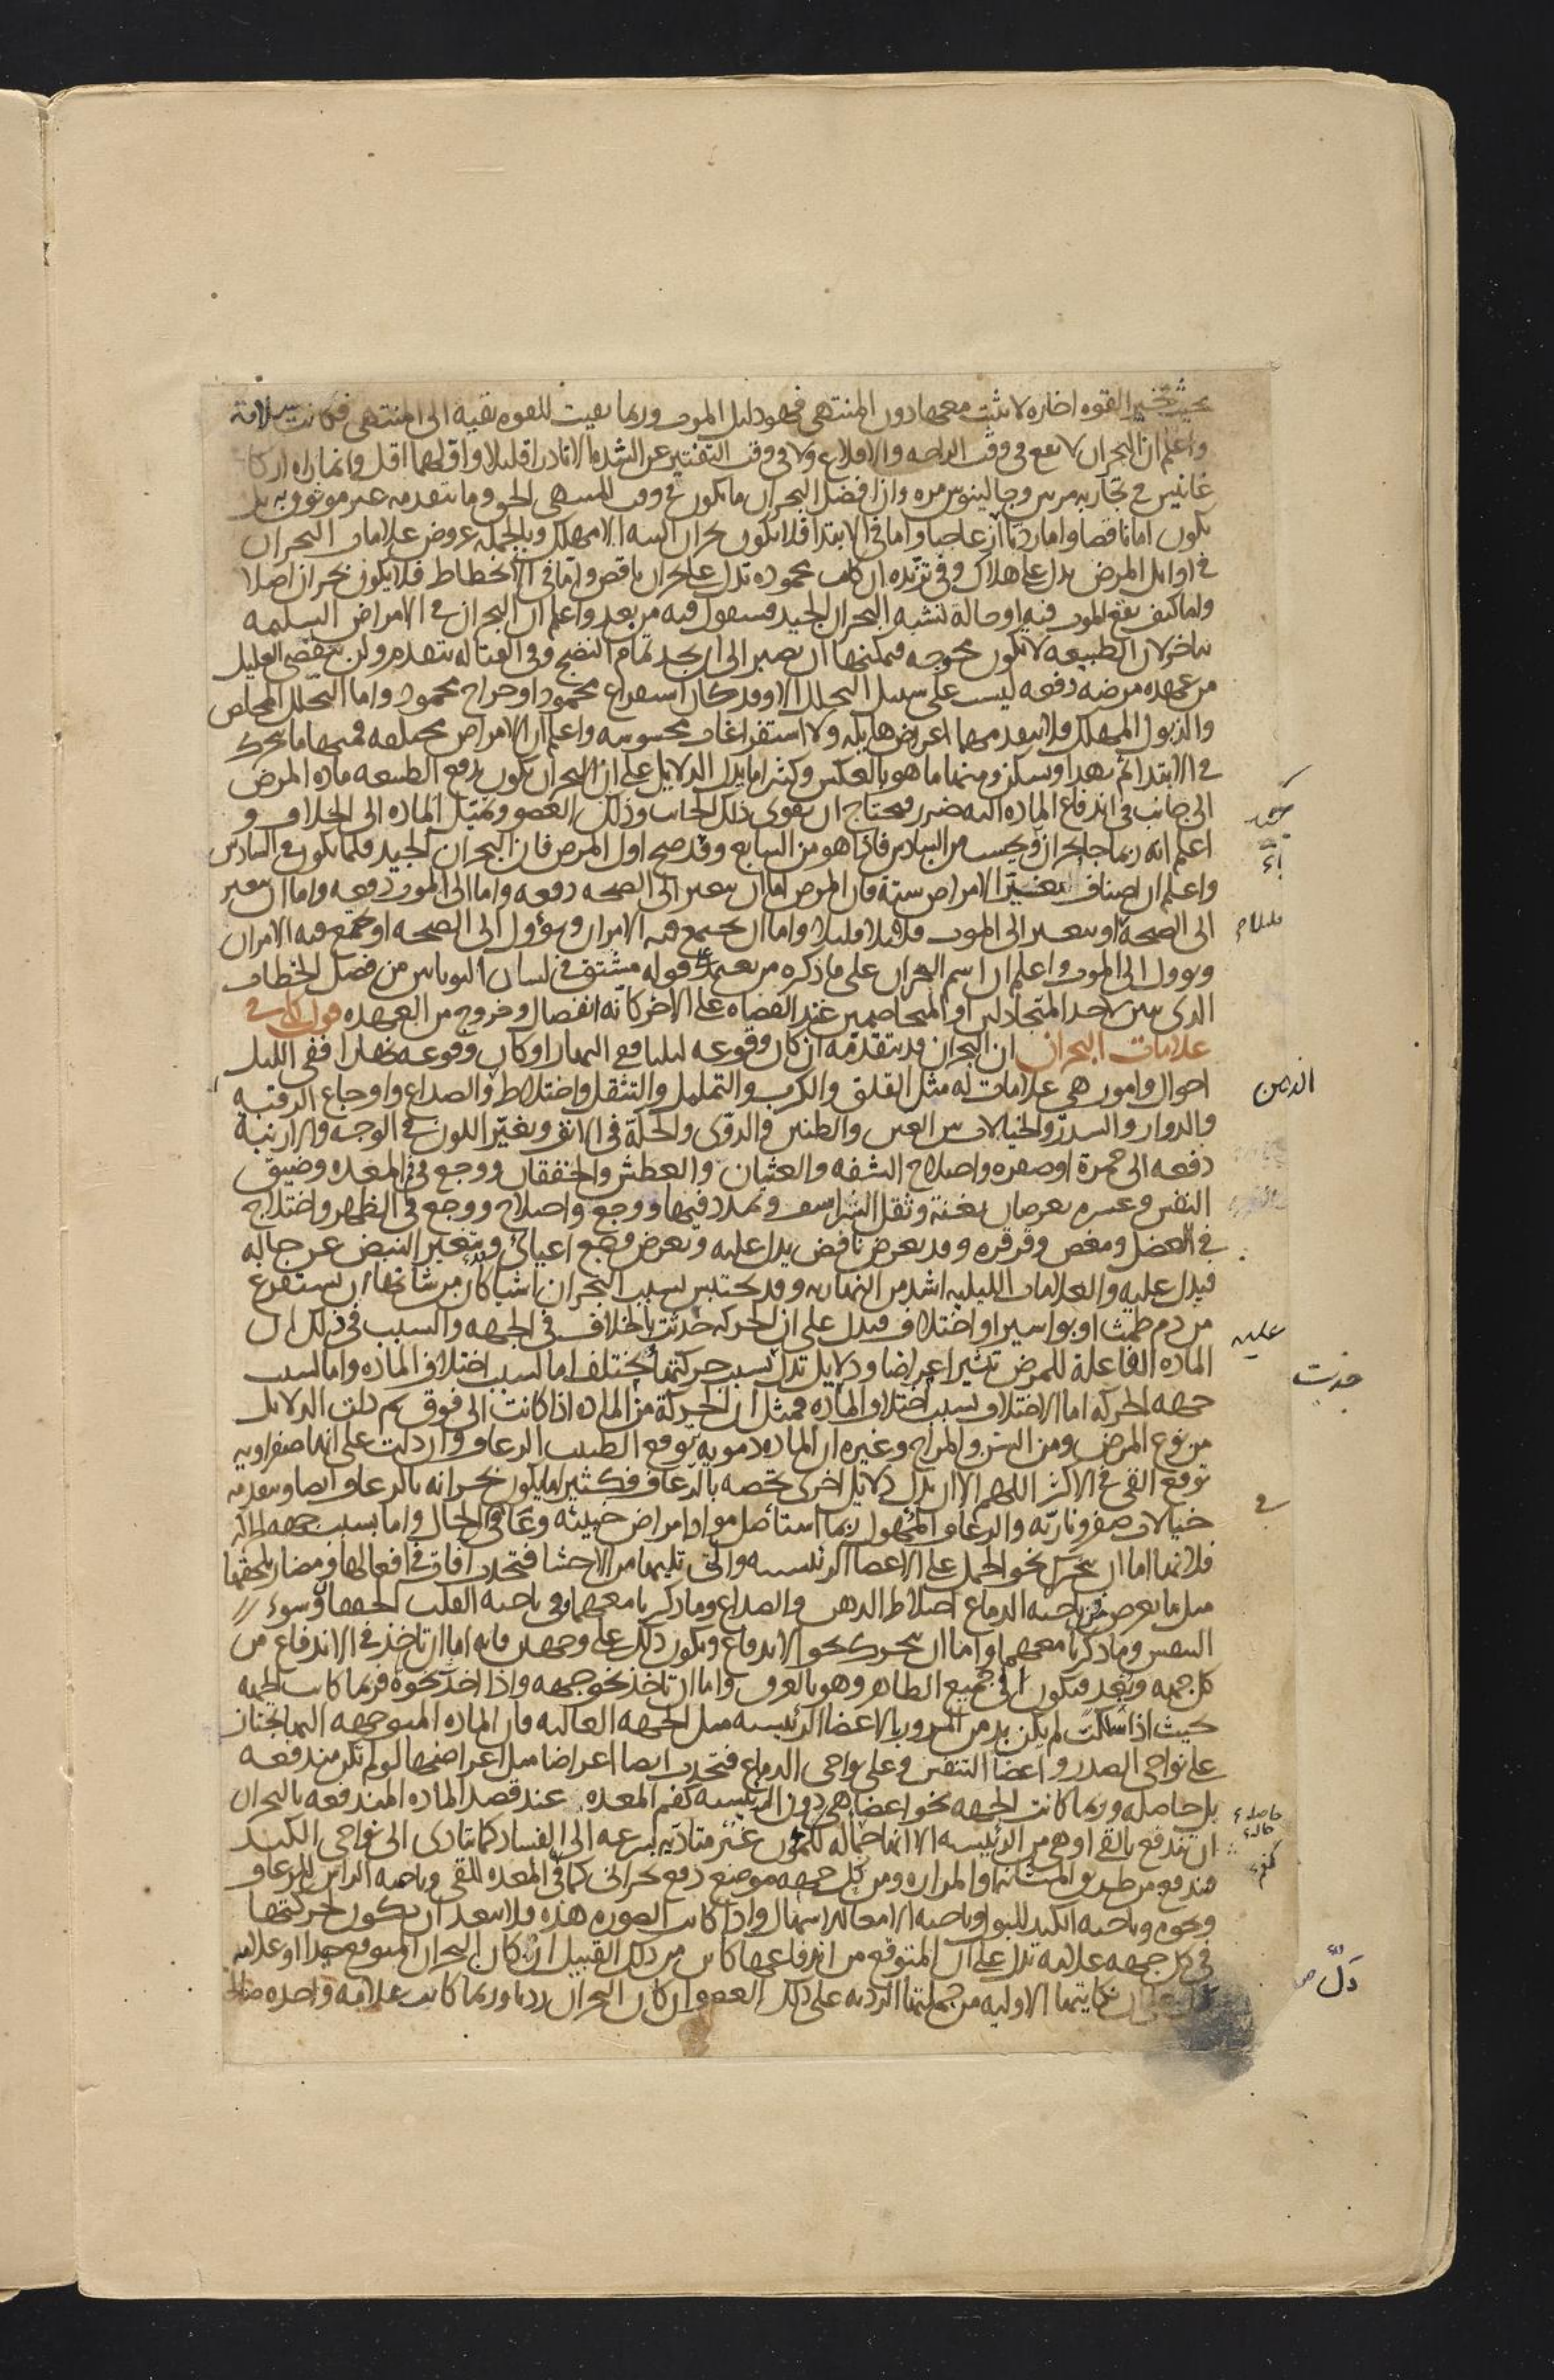 بحيث تخير القوه اخاره لا تثبت معها دون المنتهى فهو دليل الموت وربما بقيت للقوه بقيه الى المنتهى فكانت سلامة
واعلم ان البحران لا يقع فى وقت الراحه والاقلاع ولا فى وقت التفتير عن الشده الا نادرا قليلا واقلهما اقل وانما راه اركا
غانيس فى تجاربه مرتين وجالينوس مره وان افضل البحران ما يكون فى وقت المنتهى الحق وما يتقدمه غير موثوق به بل
يكون اما ناقصا واما رديا ازعاجيا واما فى الابتدا فلا يكون بحران البته الا مهلك وبالجمله عروض علامات البحران
فى اوايل المرض يدل على هلاك وفى تزيده ان كانت محموده تدل على بحران ناقص واما فى الانحطاط فلا يكون بحران اصلا
واما كيف يقع الموت فيه او حالة تشبه البحران الجيد فسنقول فيه من بعد واعلم ان البحران فى الامراض السليمه
يتاخر لان الطبيعه لا تكون محوجه فيمكنها ان تصبر الى ان يجد تمام النضج وفى القتاله يتقدم ولن يتقصى العليل
من عهده مرضه دفعه ليست على سبيل التحلل الا وقد كان استفراغ محمود او خراج محمود واما التحلل المخلص
والذبول المهلك فلا يتقدمهما اعراض هايله ولا استفراغات محسوسه واعلم ان الامراض مختلفه فمنها ما يتحرك
فى الابتدا ثم يهدا ويسكن ومنها ما هو بالعكس وكثيرا ما يدل الدلايل على ان البحران يكون بدفع الطبيعه ماده المرض
الى جانب فى اندفاع الماده اليه ضرر فيحتاج ان يقوى ذلك الجانب وذلك العضو وتميل الماده الى الخلاف و
اعلم انه ربما جا بحران وحسب من السادس فاذا هو من السابع وقد صح اول المرض فان البحران الجيد قلما يكون فى السادس
واعلم ان اصناف تغير الامراض ستة فان المرض اما ان يتغير الى الصحه دفعه واما الى الموت دفعه واما ان يتغير
الى الصحة او يتغير الى الموت قليلا قليلا واما ان يجتمع فيه الامران ويؤول الى الصحه او يجتمع فيه الامران
ويوول الى الموت واعلم ان اسم البحران على ما ذكره من يعتمد قوله مشتق فى لسان اليونانيين من فصل الخطاب
الذى يتبين لاحد المتجادلين او المتخاصمين عند القضاه على الاخر كانه انفصال وخروج من العهده قول كلى فى
علامات البحران ان البحران قد يتقدمه ان كان وقوعه ليليا ففى النهار او كان وقوعه نهارا ففى الليل
احوال وامور هى علامات له مثل القلق والكرب والتململ والتثقل واختلاط والصداع واوجاع الرقبه
والدوار والسدر والخيالات بين العين والطنين والدوى والحكة فى الانف وتغير اللون فى الوجه والارنبة
دفعه الى حمرة او صفره واختلاج الشفه والغثيان والعطش والخفقان ووجع فى فم المعده وضيق
النفس وعسره يعرضان بغتة وثقل الشراسيف وتمدد فيها ووجع واختلاج ووجع فى الظهر واختلاج
فى العضل ومغص وقرقره وقد يعرض نافض يدل عليه ويعرض وجع اعيائى ويتغير النبض عن حاله
فيدل عليه والعلامات الليليه اشد من النهاريه وقد يحتبس بسبب البحران اشيا كان من شانها ان يستفرغ
من دم طمث او بواسير او اختلاف فيدل على ان الحركه حدثت بالخلاف فى الجهه والسبب فى ذلك ان
الماده الفاعلة للمرض تثير اعراضا ودلايل تدل بسبب حركتها مختلف اما لسبب اختلاف الماده واما لسبب
جهه الحركه اما الاختلاف بسبب اختلاف الماده فمثل ان الحركة من الماده اذا كانت الى فوق ثم دلت الدلايل
من نوع المرض ومن السن والمزاج وغيره ان الماده دمويه توقع الطبيب الرعاف وان دلت على انها صفراويه
توقع القى فى الاكثر اللهم الا ان يدل دلايل اخرى تخصه بالرعاف فكثيرا ما يكون بحرانه بالرعاف ايضا ويتقدمه
خيالات صفر وناريه والرعاف المهول ربما استأصل مواد امراض خبيثه وعافى فى الحال واما بسبب جهه الحركه
فلانها اما ان تتحرك نحو الحمل على الاعضا الرئيسيه والتى تليها من الاحشا فتحدث افات فى افعالها ومضار يلحقها
مثل ما يعرض من ناحيه الدماغ اختلاط الذهن والصداع وما ذكرنا معهما وفى ناحيه القلب الخفقان وسوء
التنفس وما ذكرنا معهما واما ان تتحرك نحو الاندفاع ويكون ذلك على وجهين فانه اما ان تاخذ فى الاندفاع من
كل جهه وبعد فيكون الى جميع الظاهر وهو بالعرق واما ان تاخذ نحو جهه واذا اخذ نحوه فربما كانت الجهه
بحيث اذا سلكت لم يكن بد من المرور بالاعضا الرئيسيه مثل الجهه العاليه فان الماده المتوجهه اليها تجتاز
على نواحى الصدر واعضا التنفس وعلى نواحى الدماغ فتحدث ايضا اعراضا مثل اعراضها لو لم تكن مندفعه
بل حاصله وربما كانت الجهه نحو اعضا هى دون الرئيسيه كفم المعده عند قصد الماده المندفعه بالبحران
ان تندفع بالقى او هى من الرئيسيه الا انها حماله للمؤن غير متاديه بسرعه الى الفساد كما تتادى الى نواحى الكبد
فتندفع من طريق المثانه او المراره ومن كل جهه موضع دفع بحرانى كما فى المعده للقى وناحيه الراس للرعاف
ونحوه وناحيه الكبد للبول وناحيه الامعا للاسهال واذا كانت الصوره هذه فلا يبعد ان يكون لحركتها
فى كل جهه علامه تدل على ان المتوقع من اندفاعها كاين من ذلك القبيل ان كان البحران المتوقع جيدا او علامه
نكايتها الاوليه من جملتها الرديه على ذلك العضو ان كان البحران رديا وربما كانت علامه واحده صالحه
الذهن
عليه
حدثت
فى
حاصله
دلّ